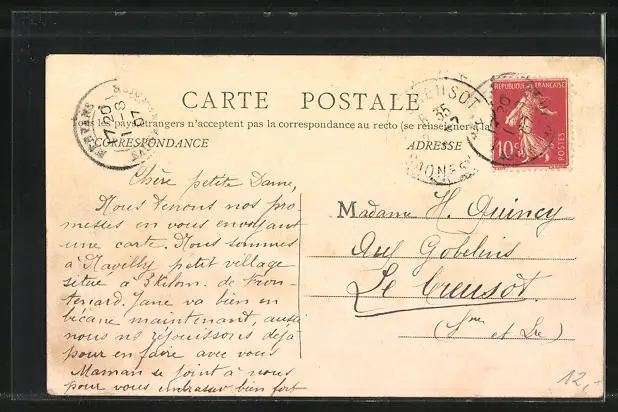 CARTE POSTALE
les pays étrangers n'acceptent pas la correspondance au recto (se renseigner à la
CORRESPONDANCE
ADRESSE
REPUBLIQUE FRANÇAISE
10c
POSTES
Chère petite Dame,
Nous tenons nos pro-
messes en vous envoyant
une carte. Nous sommes
à Navilly petit village
situé à 3 kilom. de Fron-
tenard. Jane va bien en
bécane maintenant, aussi
nous nous réjouissons déjà
pour en faire avec vous
Maman se joint à nous
pour vous embrasser bien fort
Madame H. Quincy
aux Gobelins
Le Creusot.
(Sne et Lre)
12,-